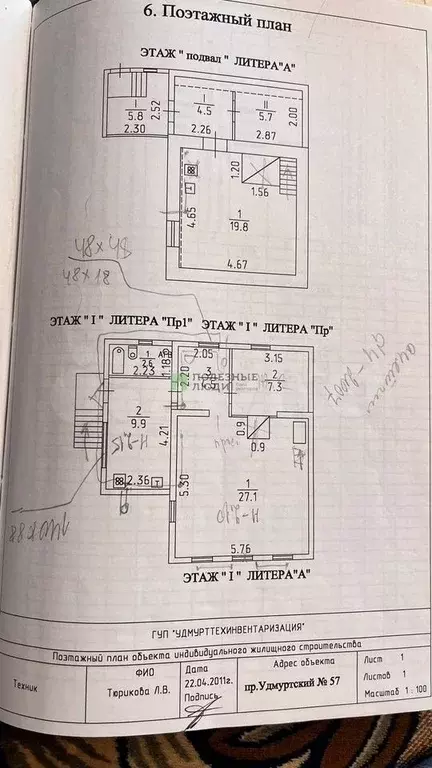 6. Поэтажный план
ЭТАЖ " подвал " ЛИТЕРА"А"
I
5.8
2.52
2.30
I
4.5
2.26
II
5.7
2.00
2.87
1.20
1.56
4.65
1
19.8
4.67
48x48
48x18
ЭТАЖ " I " ЛИТЕРА "Пр1"
ЭТАЖ " I " ЛИТЕРА "Пр"
1
2.6
2.23
1.18
2.05
3.15
2.20
3
2
7.3
ПОЛЕЗНЫЕ
ЛЮДИ
2
9.9
4.21
2.36
0.9
0.9
5.30
1
27.1
5.76
ЭТАЖ " I " ЛИТЕРА"А"
ГУП "УДМУРТТЕХИНВЕНТАРИЗАЦИЯ"
Поэтажный план объекта индивидуального жилищного строительства
Техник
ФИО
Тюрикова Л.В.
Дата
22.04.2011г.
Подпись
Адрес объекта
пр.Удмуртский № 57
Лист 1
Листов 1
Масштаб 1:100